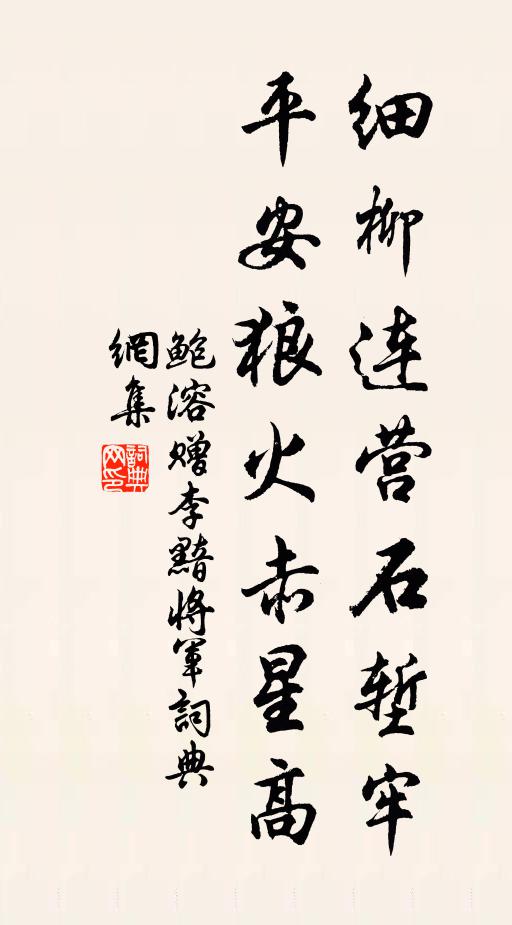 细柳连营石堑牢
平安狼火赤星高
鲍溶赠李黯将军詞典
網集
詞典网印